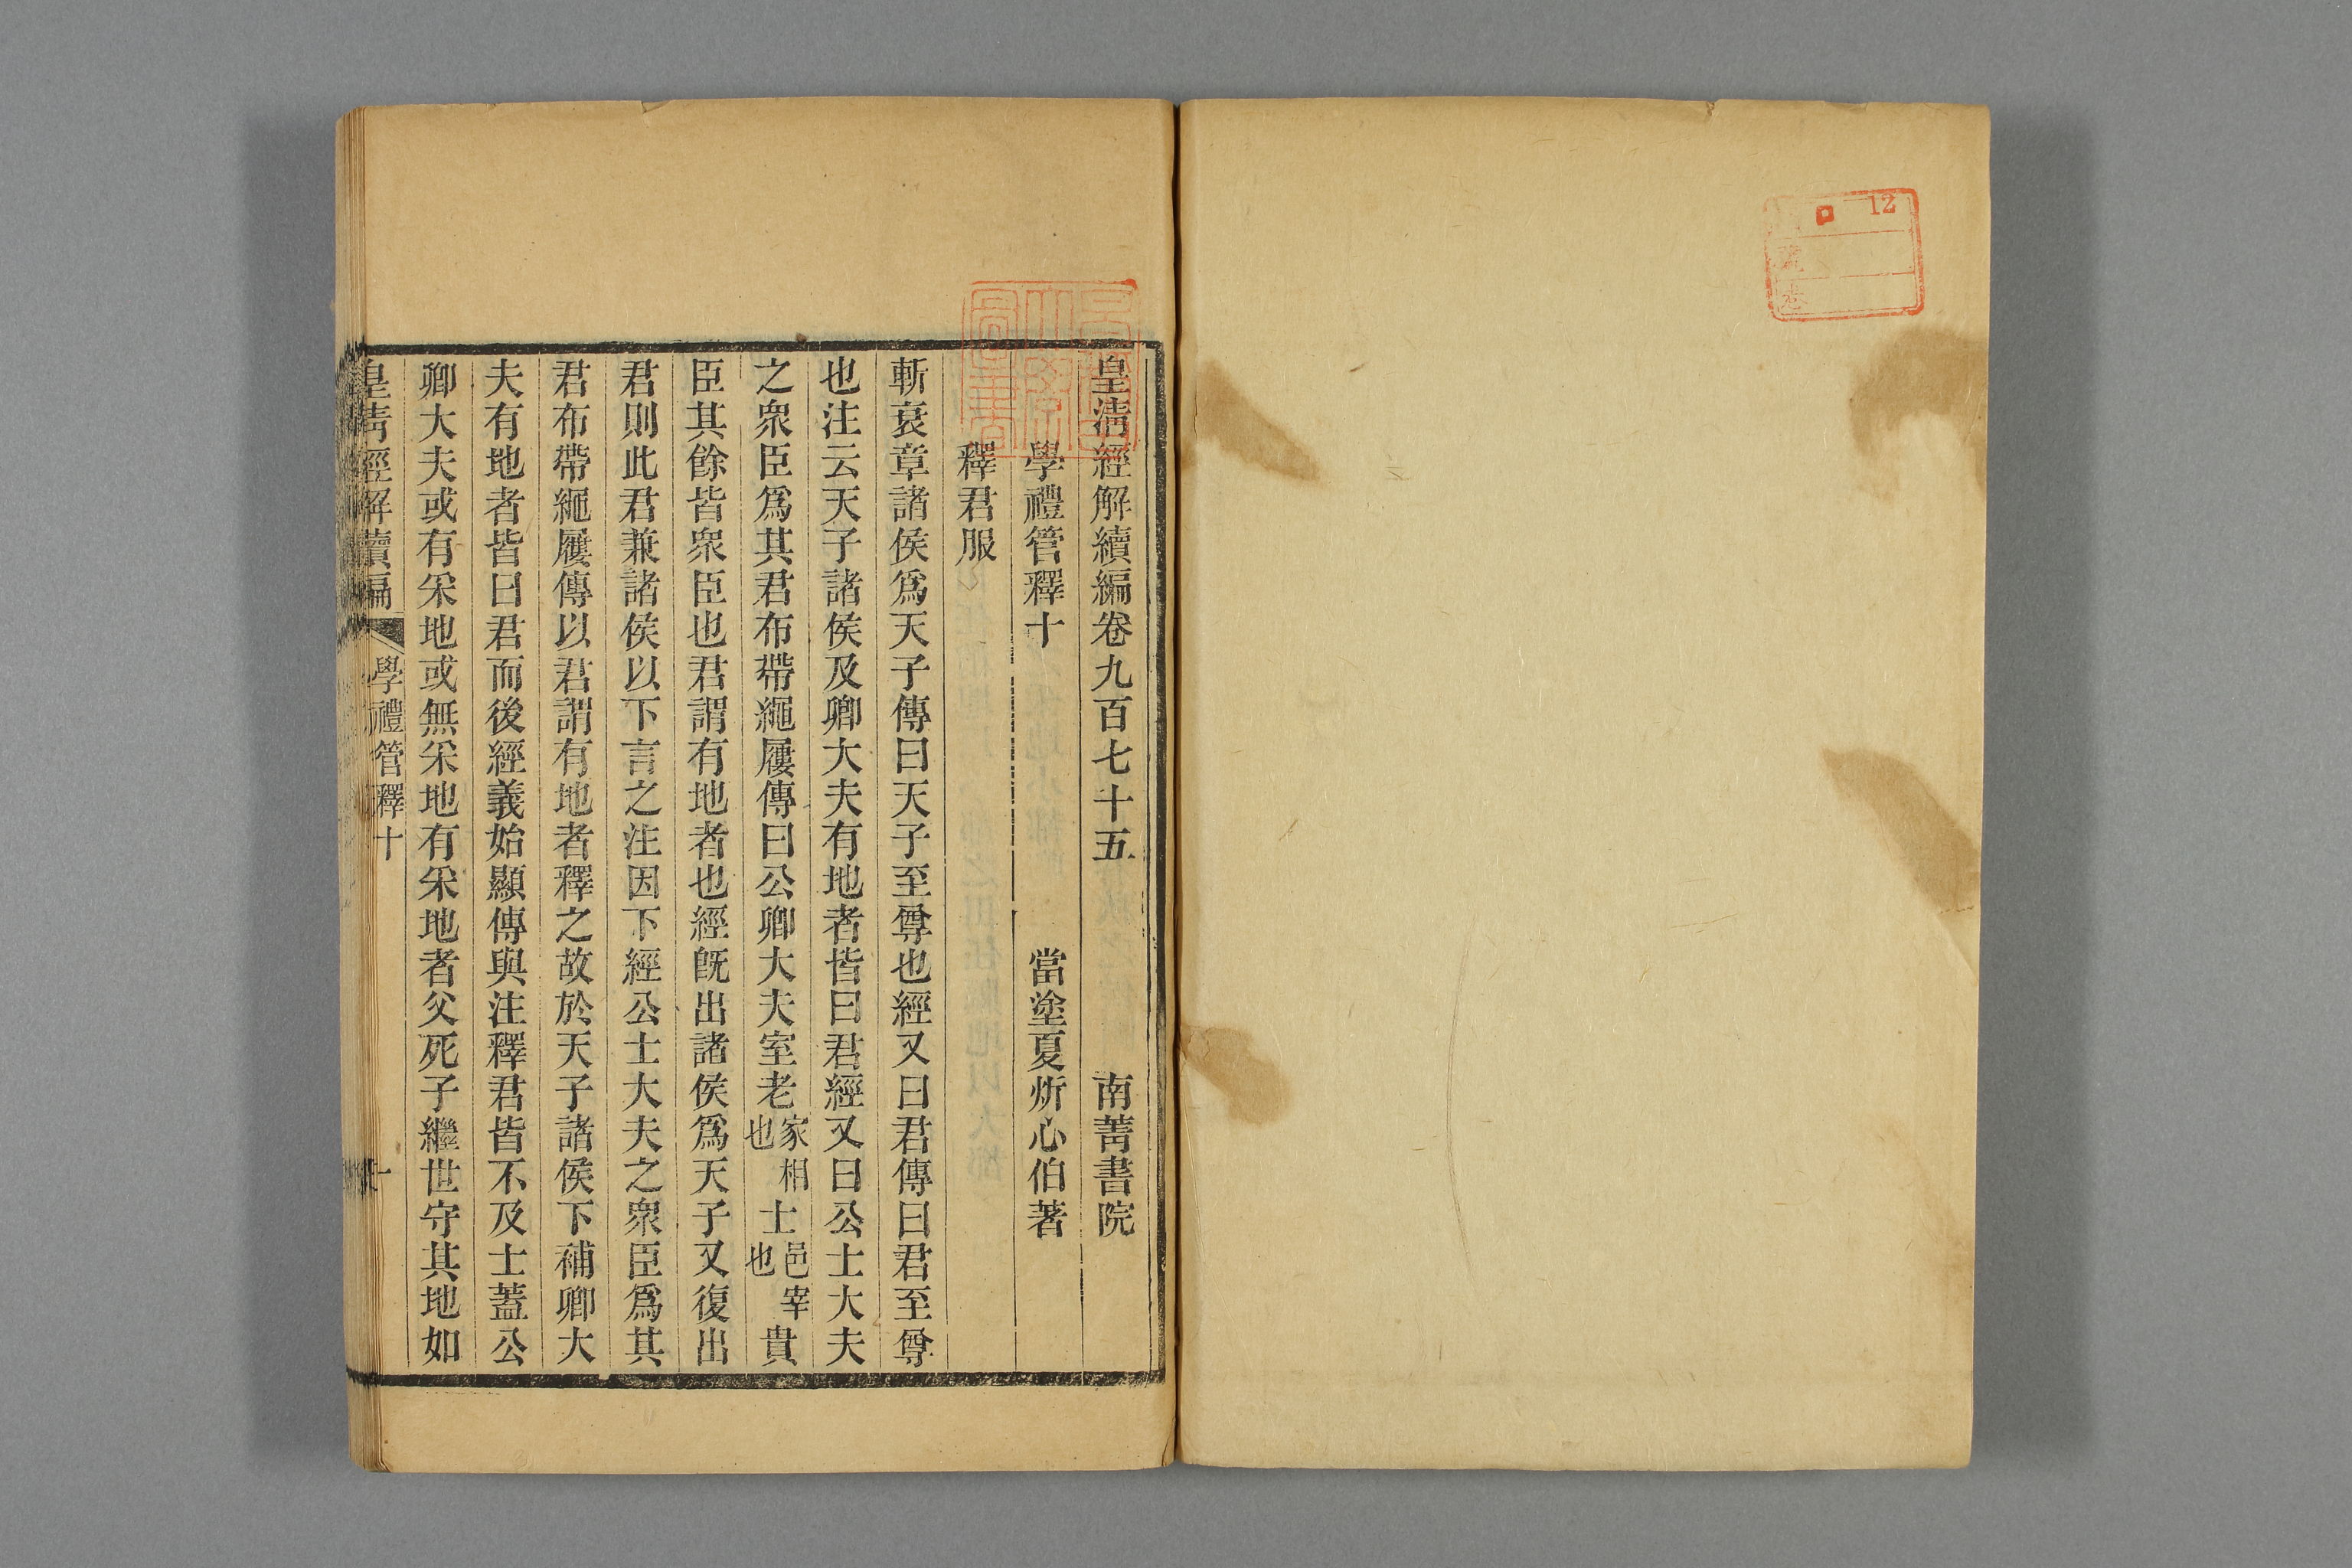 皇清經解續編卷九百七十五 南菁書院
學禮管釋十 當塗夏炘心伯著
釋君服
斬衰章諸侯爲天子傳曰天子至尊也經又曰君傳曰君至尊
也注云天子諸侯及卿大夫有地者皆曰君經又曰公士大夫
之衆臣爲其君布帶繩屨傳曰公卿大夫室老家相也士邑宰也貴
臣其餘皆衆臣也君謂有地者也經旣出諸侯爲天子又復出
君則此君兼諸侯以下言之注因下經公士大夫之衆臣爲其
君布帶繩屨傳以君謂有地者釋之故於天子諸侯下補卿大
夫有地者皆曰君而後經義始顯傳與注釋君皆不及士蓋公
卿大夫或有采地或無采地有采地者父死子繼世守其地如
皇清經解續編 學禮管釋十 一
12